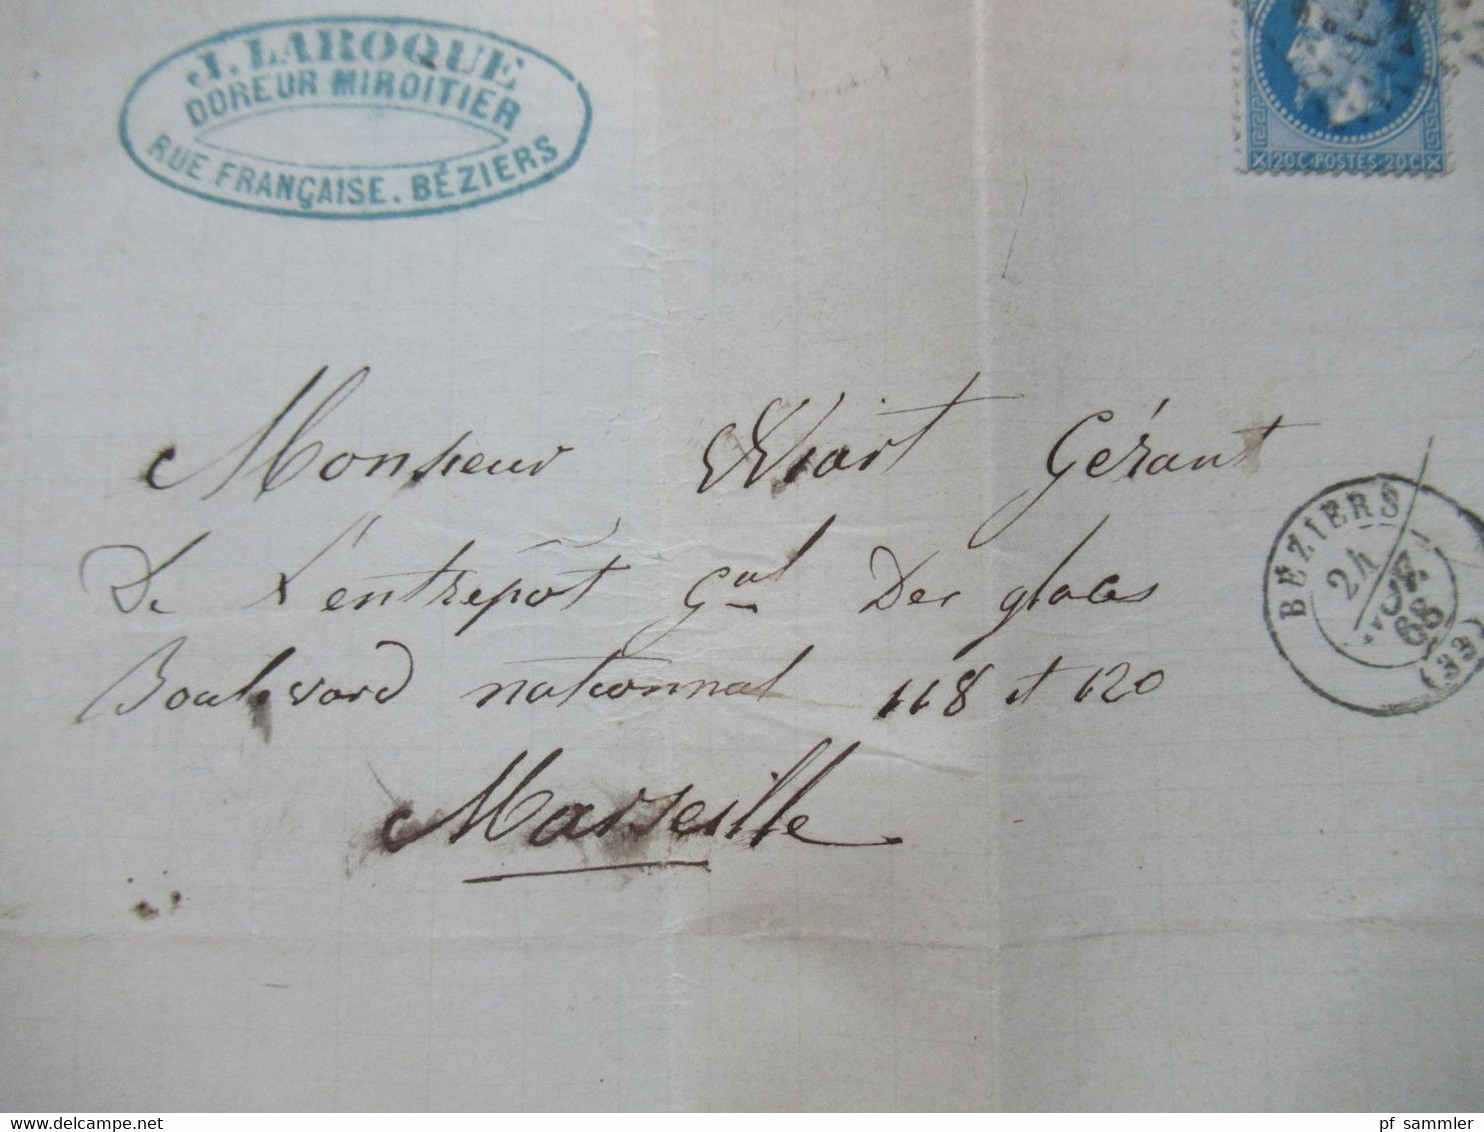 J. LAROQUE
DOREUR MIROITIER
RUE FRANÇAISE. BÉZIERS
20C·POSTES·20C
Monsieur Wiart Gérant
De L'entrepôt Gal Des glaces
Boulevard national 118 et 120
Marseille
BÉZIERS
24
68
(33)
delcampe.net
pf_sammler